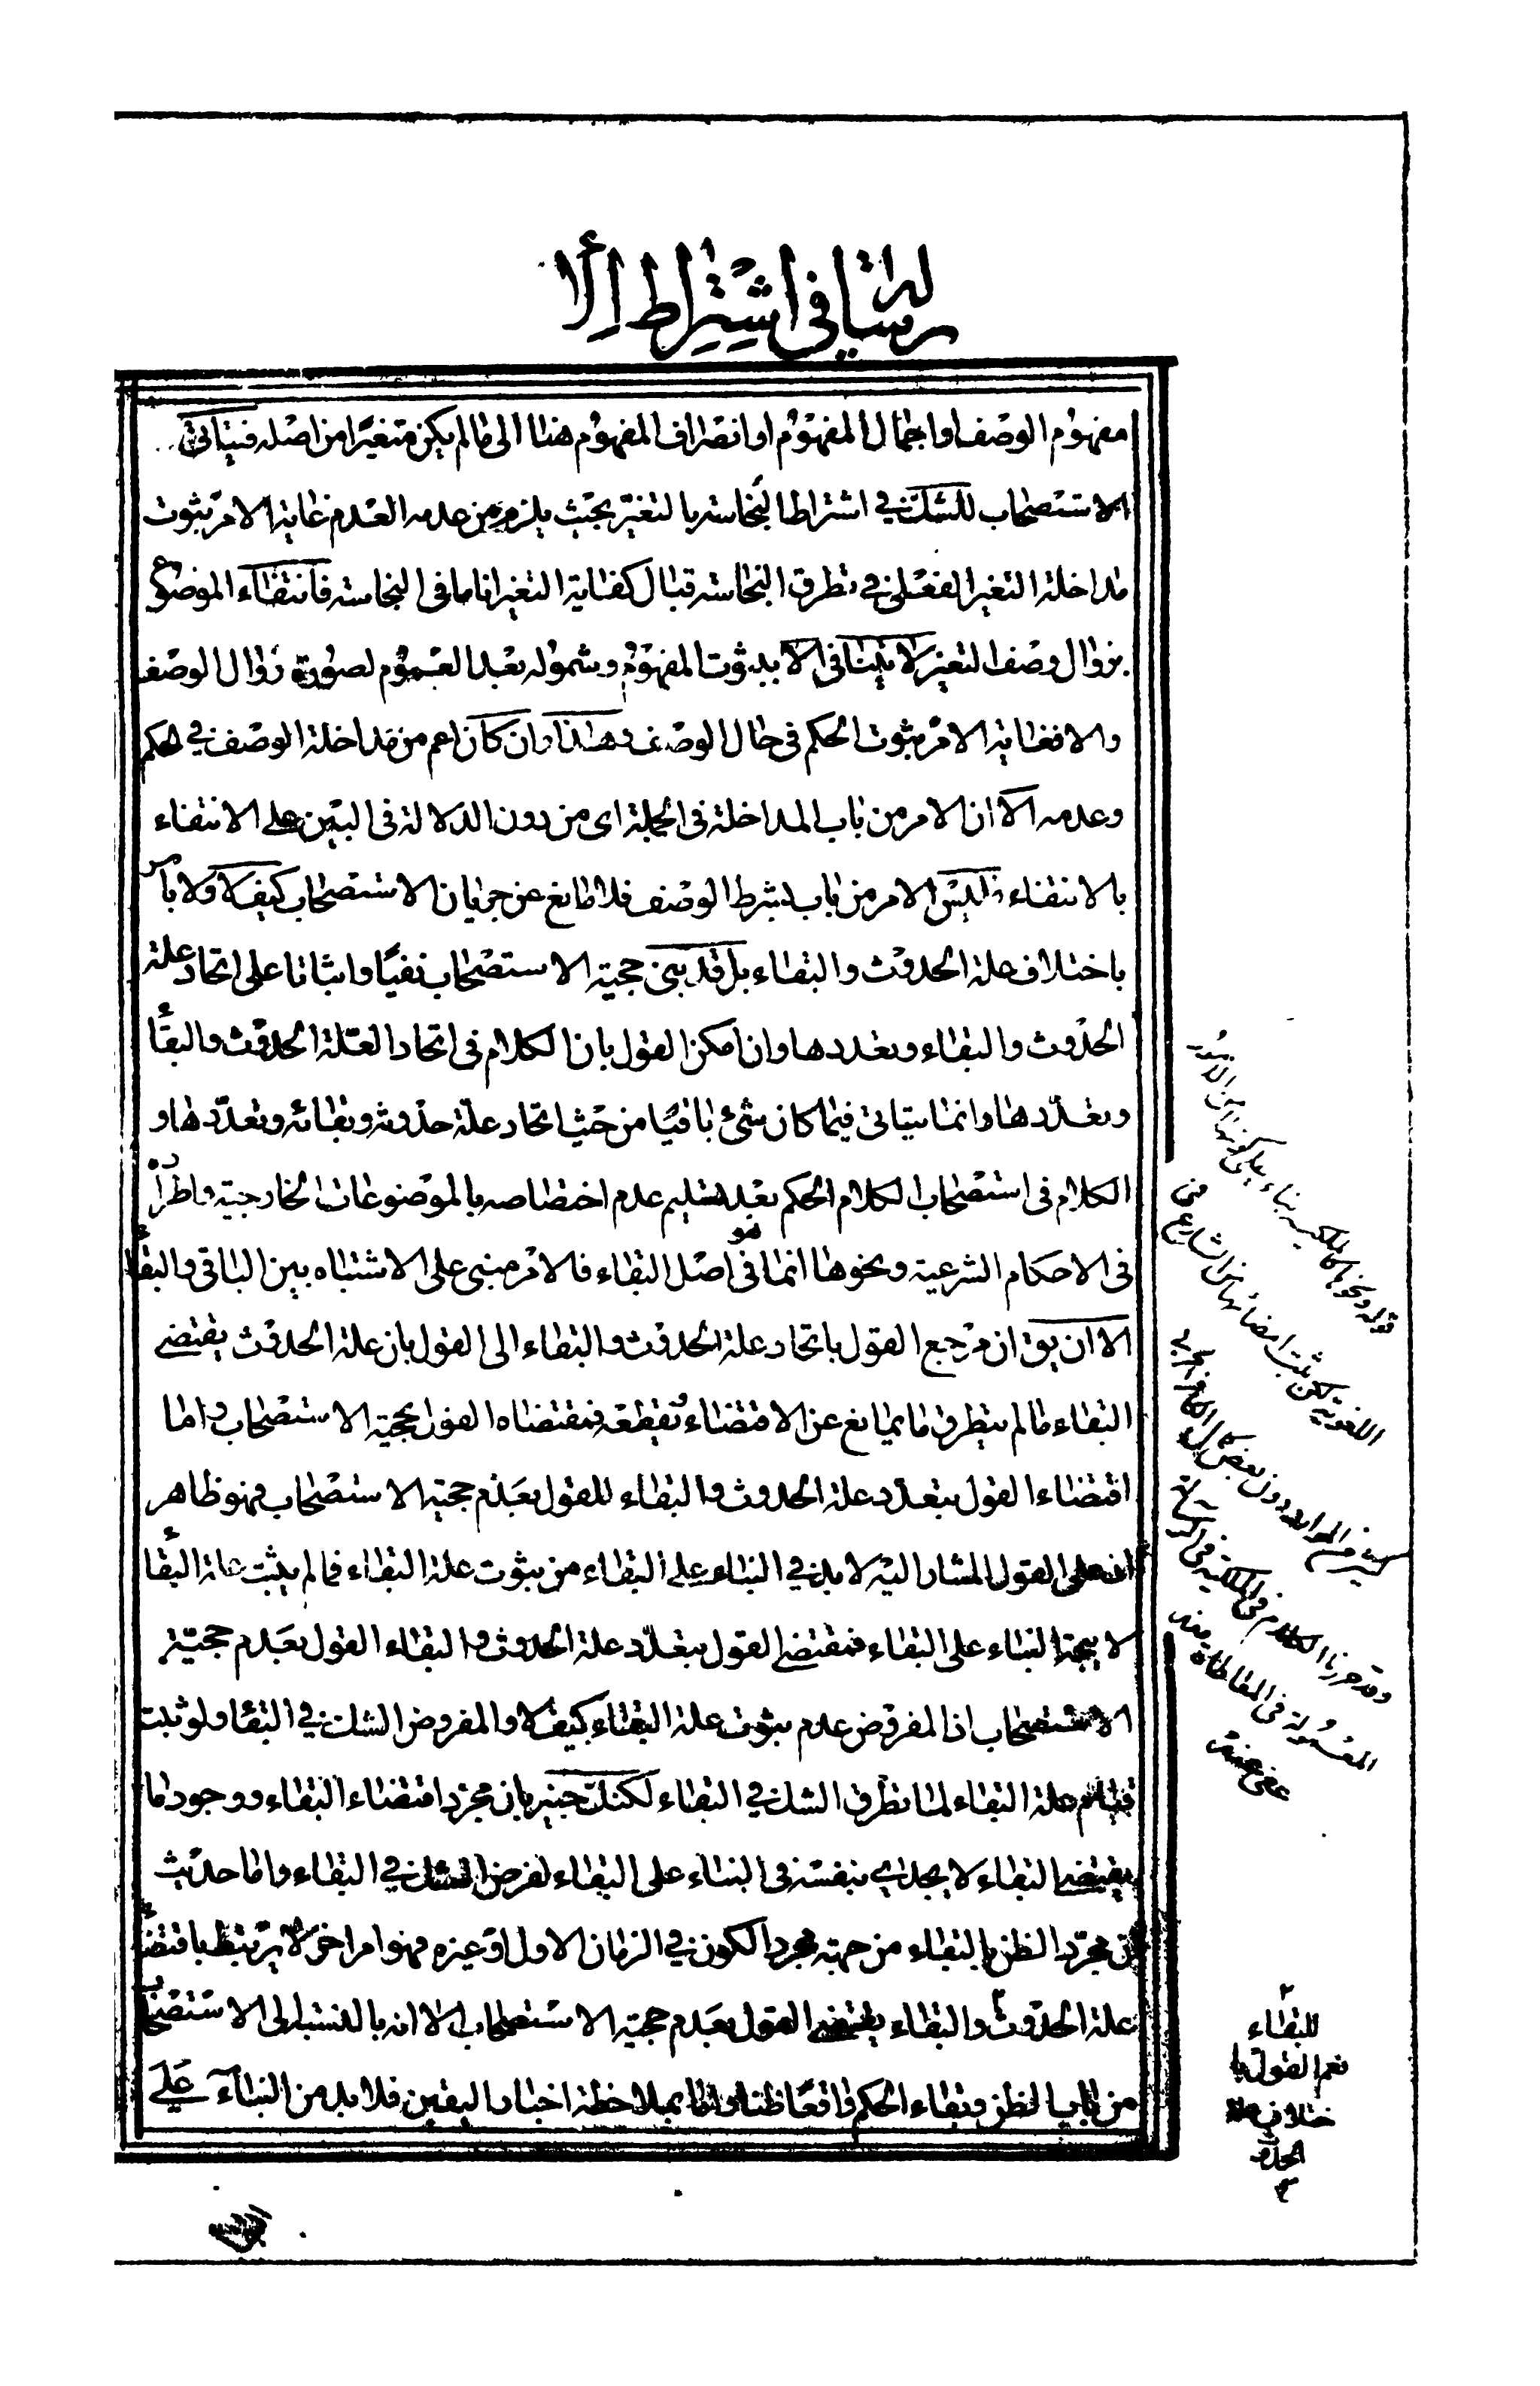 رسالة في اشتراط الا
مفهوم الوصف او اجمال المفهوم او انصراف المفهوم هنا الى ما لم يكن متغيرا من اصله فيتاتى
الاستصحاب للشك في اشتراط النجاسة بالتغير بحيث يلزم من عدمه العدم غاية الامر ثبوت
مداخلة التغير الفعلى في تطرق النجاسة قبال كفاية التغير انا ما فى النجاسة فانتفاء الموضوع
بزوال وصف التغير لا يتاتى الا بثبوت المفهوم وشموله بعد العموم لصورة زوال الوصف
والا فغاية الامر ثبوت الحكم فى حال الوصف وهذا وان كان اعم من مداخلة الوصف في الحكم
وعدمه الا ان الامر من باب المداخلة فى الجملة اى من دون الدلالة فى البين على الانتفاء
بالانتفاء وليس الامر من باب شرط الوصف فلا مانع عن جريان الاستصحاب كيف لا ولا باس
باختلاف علة الحدوث والبقاء بل قد يبنى حجية الاستصحاب نفيا واثباتا على اتحاد علة
الحدوث والبقاء وتعددها وان امكن القول بان الكلام فى اتحاد العلة الحدوث والبقاء
وتعددها وانما يتاتى فيما كان شئ باقيا من حيث اتحاد علة حدوثه وبقائه وتعددها و
الكلام فى استصحاب الكلام الحكم بعد تسليم عدم اختصاصه بالموضوعات الخارجية واطراده
فى الاحكام الشرعية ونحوها انما هو فى اصل البقاء فالامر مبنى على الاشتباه بين الباقى والبقاء
الا ان يق ان مرجع القول باتحاد علة الحدوث والبقاء الى القول بان علة الحدوث يقتضى
البقاء ما لم يتطرق ما يمانع عن الاقتضاء ويقطعه فمقتضاه القول بحجية الاستصحاب واما
اقتضاء القول بتعدد علة الحدوث والبقاء للقول بعدم حجية الاستصحاب فهو ظاهر
اذ على القول المشار اليه لابد في البناء على البقاء من ثبوت علة البقاء فما لم يثبت علة البقاء
لا يتجه البناء على البقاء فمقتضى القول بتعدد علة الحدوث والبقاء القول بعدم حجية
الاستصحاب اذ المفروض عدم ثبوت علة البقاء كيف لا والمفروض الشك في البقاء ولو ثبت
قيام علة البقاء لما تطرق الشك في البقاء لكنك خبير بان مجرد اقتضاء البقاء ووجود ما
يقتضى البقاء لا يجدى بنفسه فى البناء على البقاء لفرض الشك في البقاء واما حديث
ان مجرد الظن بالبقاء من جهة مجرد الكون في الزمان الاول او غيره فهو امر اخر لا يرتبط باقتضاء
علة الحدوث والبقاء يقتضى القول بعدم حجية الاستصحاب الا انه بالنسبة الى الاستصحاب
من باب الظن وبقاء الحكم واقعا ظنا واما بملاحظة اخبار اليقين فلا بد من البناء على
قوله ونحوها كالملكية بناء على كونها من الامور
اللغوية لكن ثبت امضائها من الشارع فى
كثير من الموارد دون بعض كما
وقد حررنا الكلام فى الملكية فى
المعمولة فى المقاطاه منه
عفى عنه
للبقاء
نعم القول با
ختلاف علة
الحدو